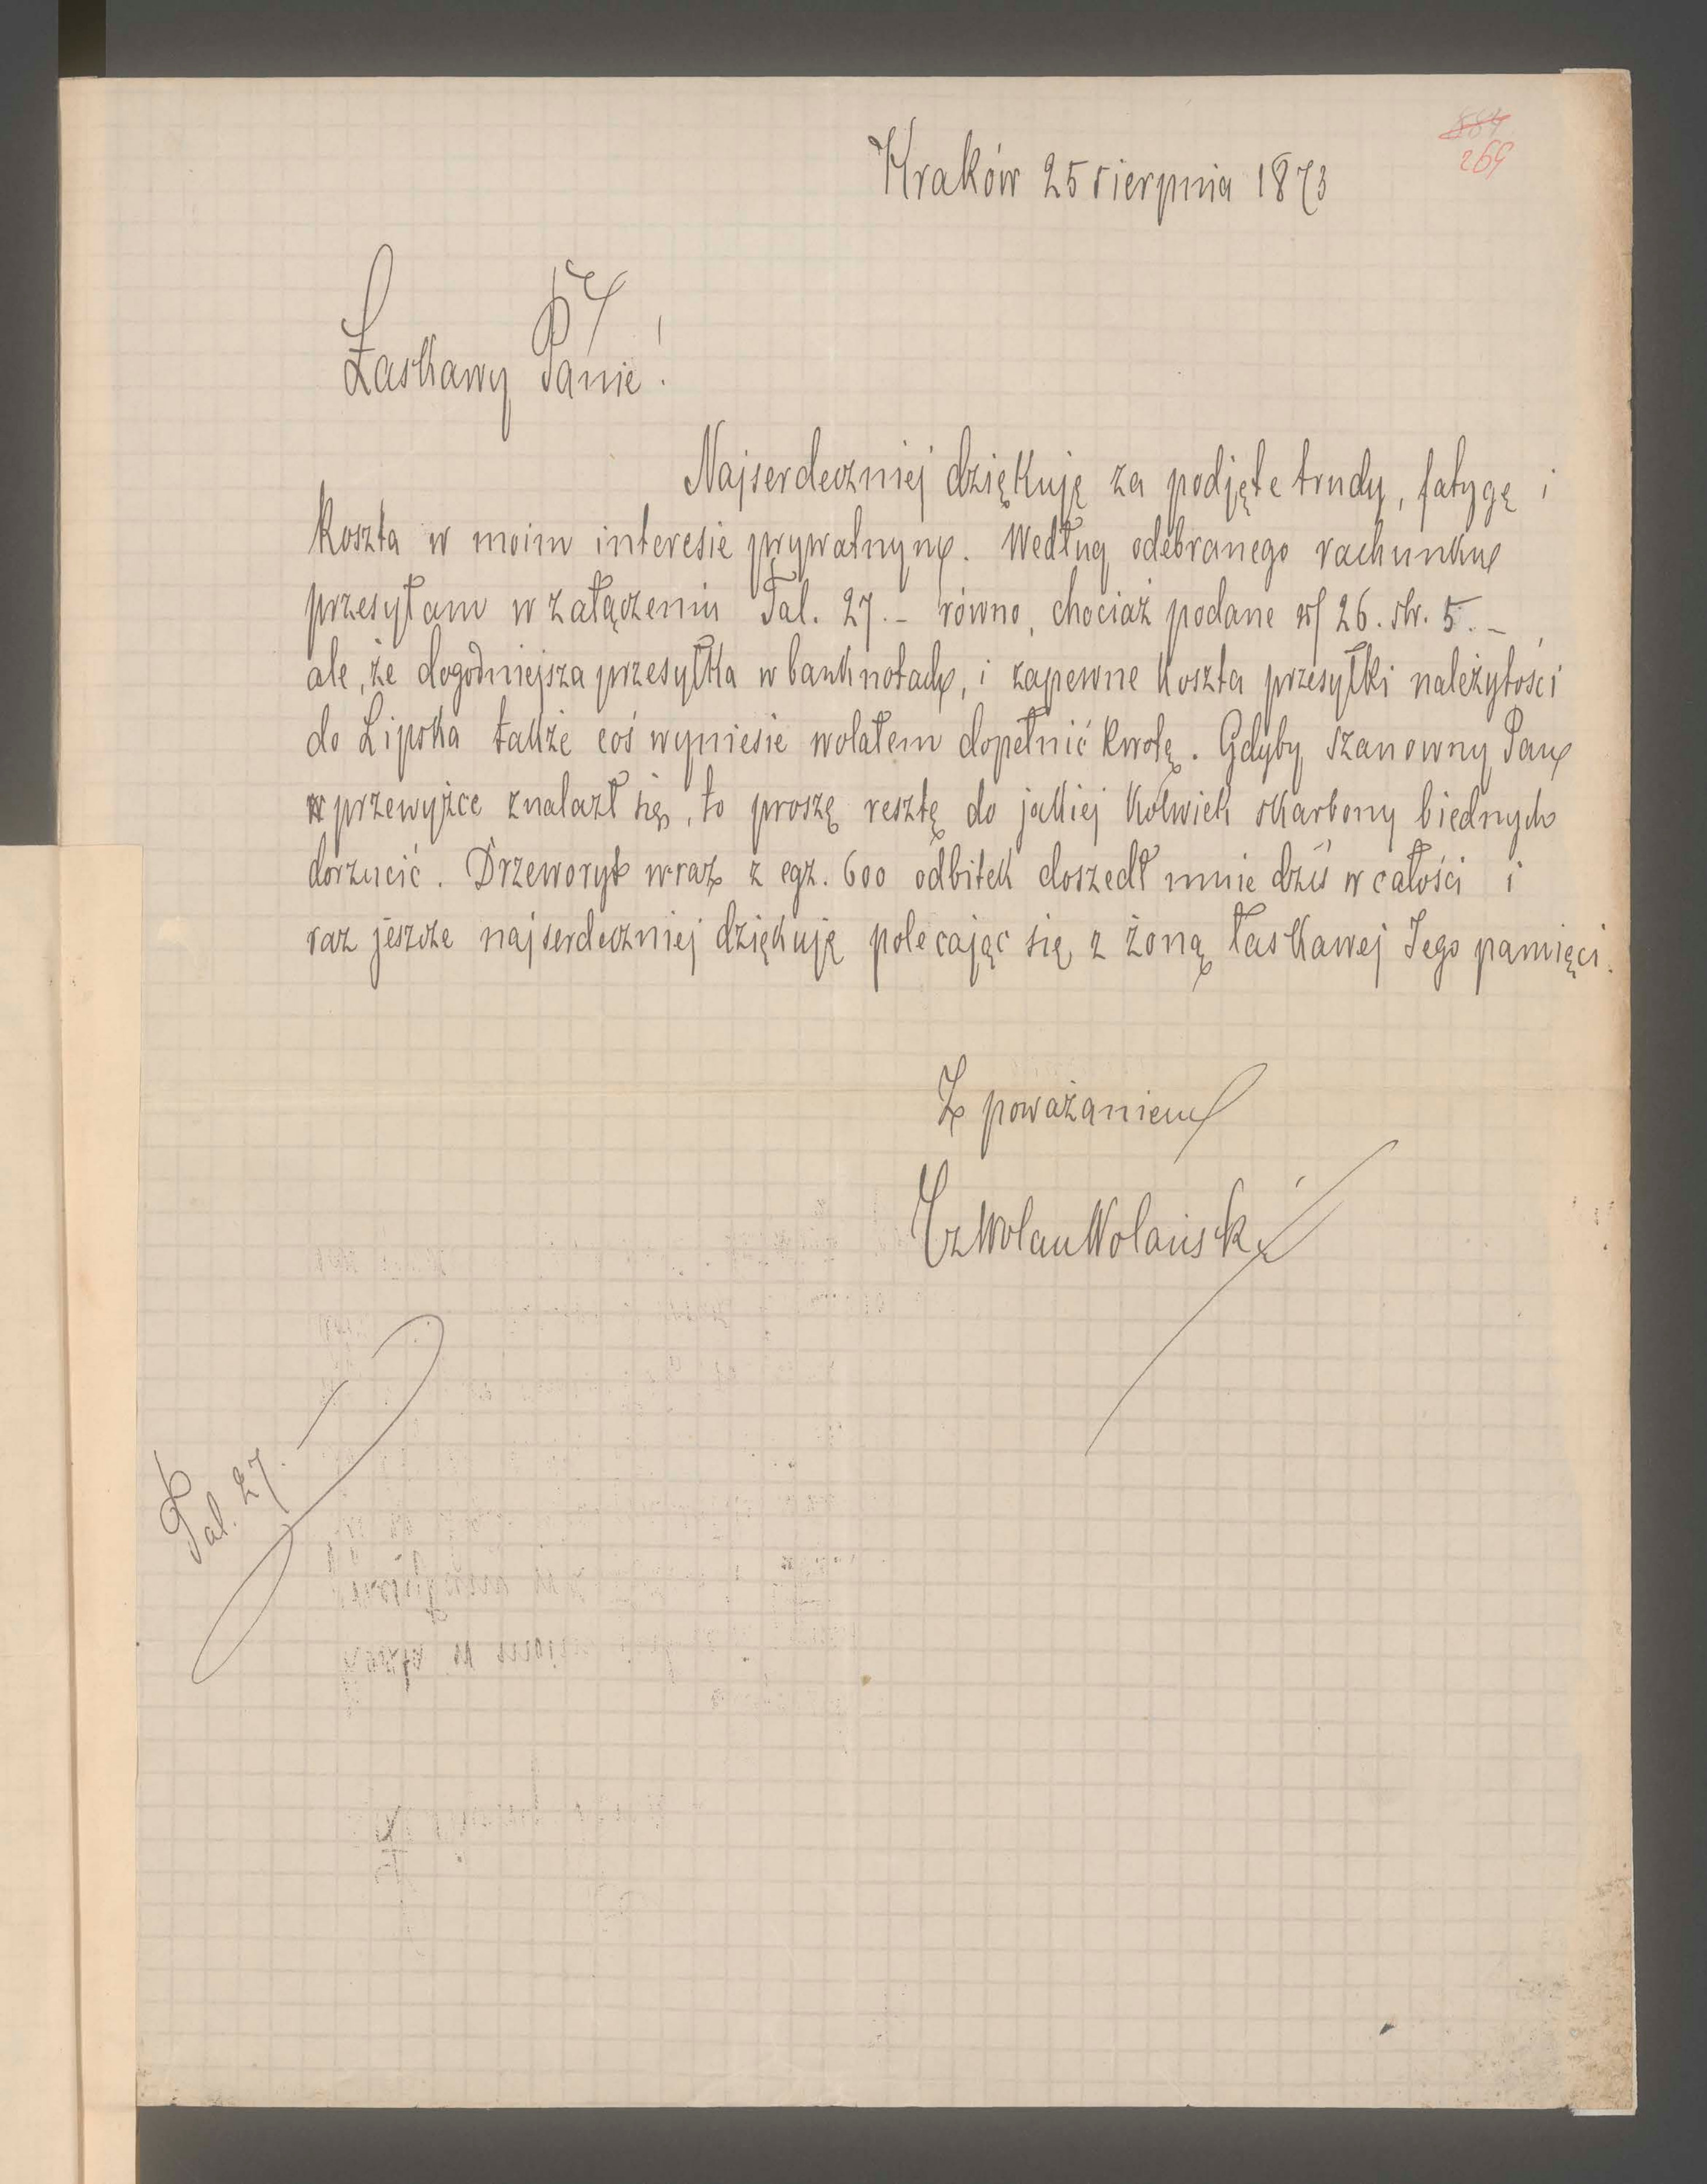 269
Kraków 25 sierpnia 1873
Łaskawy Panie!
Najserdeczniej dziękuję za podjęte trudy, fatygę i
koszta w moim interesie prywatnym. Według odebranego rachunku
przesyłam w załączeniu Tal. 27.- równo, chociaż podane 26. sbr. 5.-,
ale, że dogodniejsza przesyłka w banknotach, i zapewne koszta przesyłki należytości
do Lipska także coś wyniesie wolałem dopełnić kwotę. Gdyby szanowny Pan
w przewyżce znalazł się, to proszę resztę do jakiej kolwiek skarbony biednych
dorzucić. Drzeworyt wraz z egz. 600 odbitek doszedł mnie dziś w całości i
raz jeszcze najserdeczniej dziękuję polecając się z żoną łaskawej Jego pamięci.
Z poważaniem
Wolański
Tal. 27.-